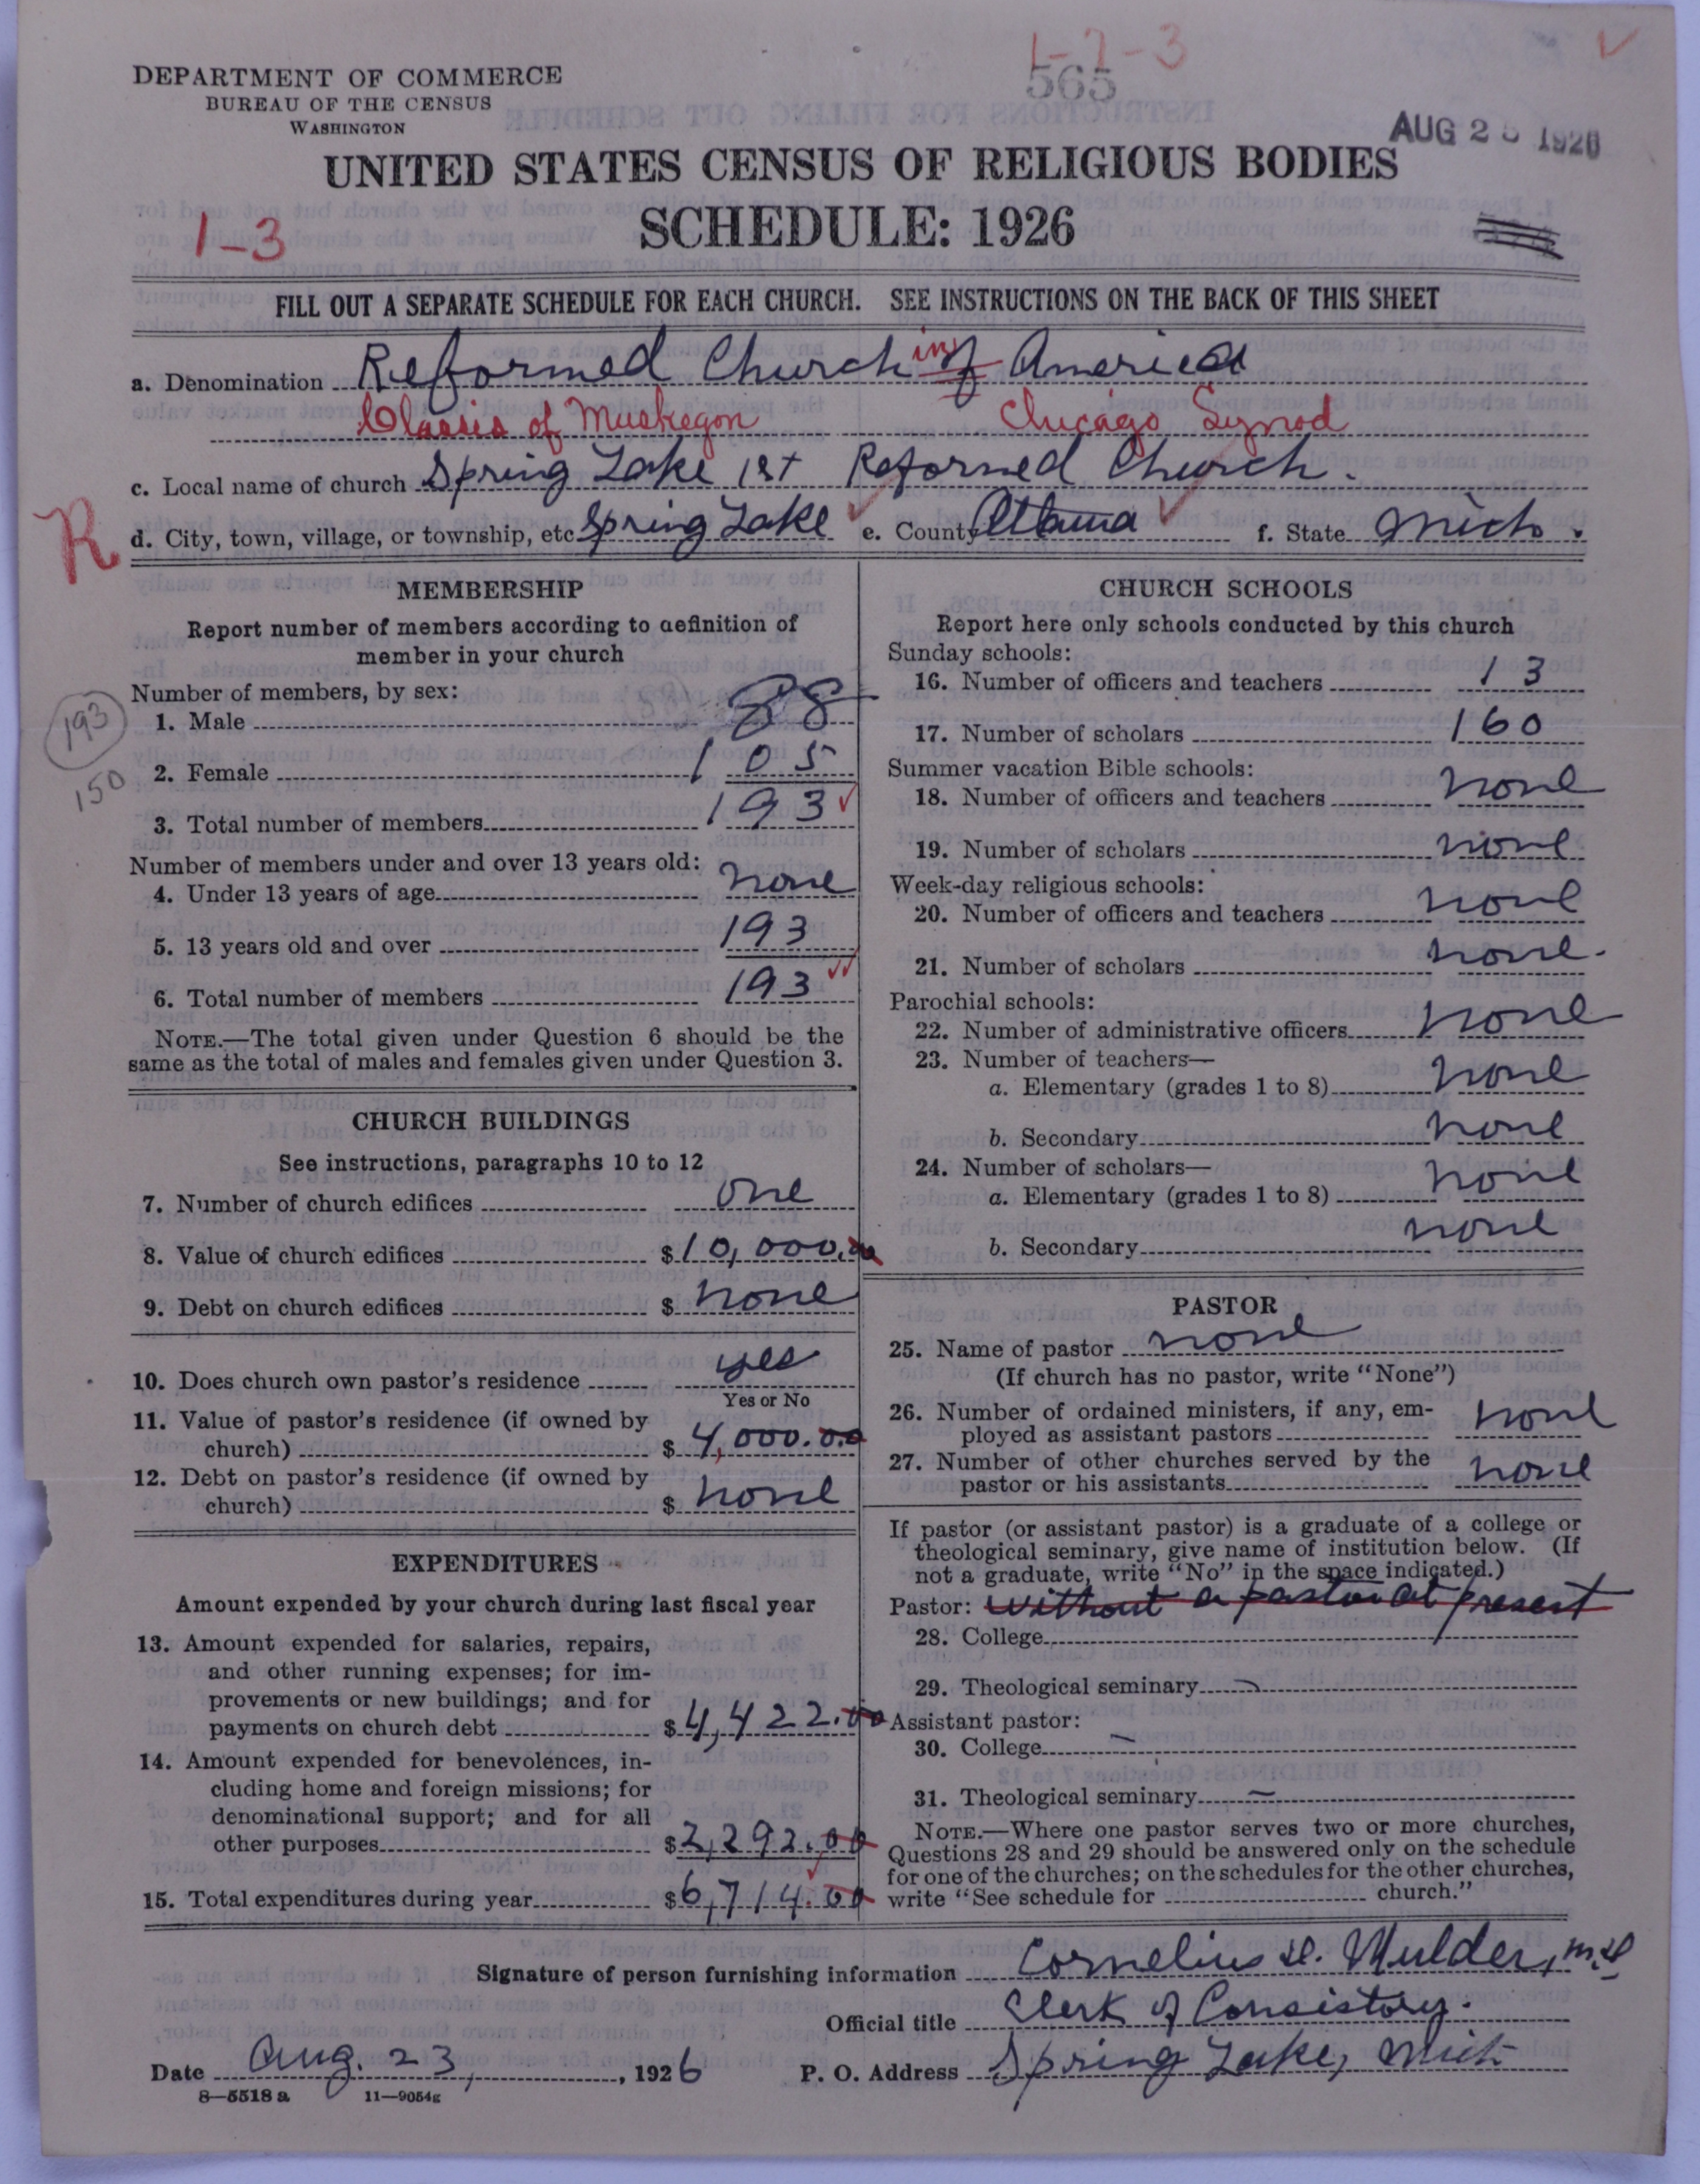 1-2-3
565
DEPARTMENT OF COMMERCE
BUREAU OF THE CENSUS
WASHINGTON
AUG 2 1926
UNITED STATES CENSUS OF RELIGIOUS BODIES
SCHEDULE: 1926
1-3
FILL OUT A SEPARATE SCHEDULE FOR EACH CHURCH. SEE INSTRUCTIONS ON THE BACK OF THIS SHEET
a. Denomination Reformed Church in of America
Classis of Muskegon Chicago Synod
c. Local name of church Spring Lake 1st Reformed Church.
R
d. City, town, village, or township, etc Spring Lake e. County Ottawa f. State Mich.
MEMBERSHIP
Report number of members according to definition of
member in your church
Number of members, by sex:
193
1. Male 88
150
2. Female 105
3. Total number of members 193
Number of members under and over 13 years old:
4. Under 13 years of age none
5. 13 years old and over 193
6. Total number of members 193
NOTE.—The total given under Question 6 should be the
same as the total of males and females given under Question 3.
CHURCH BUILDINGS
See instructions, paragraphs 10 to 12
7. Number of church edifices one
8. Value of church edifices $10,000.00
9. Debt on church edifices $ none
10. Does church own pastor's residence yes
Yes or No
11. Value of pastor's residence (if owned by
church) $ 4,000.00
12. Debt on pastor's residence (if owned by
church) $ none
EXPENDITURES
Amount expended by your church during last fiscal year
13. Amount expended for salaries, repairs,
and other running expenses; for im-
provements or new buildings; and for
payments on church debt $4,422.00
14. Amount expended for benevolences, in-
cluding home and foreign missions; for
denominational support; and for all
other purposes $2,292.00
15. Total expenditures during year $6,714.00
CHURCH SCHOOLS
Report here only schools conducted by this church
Sunday schools:
16. Number of officers and teachers 13
17. Number of scholars 160
Summer vacation Bible schools:
18. Number of officers and teachers none
19. Number of scholars none
Week-day religious schools:
20. Number of officers and teachers none
21. Number of scholars none.
Parochial schools:
22. Number of administrative officers none
23. Number of teachers—
a. Elementary (grades 1 to 8) none
b. Secondary none
24. Number of scholars—
a. Elementary (grades 1 to 8) none
b. Secondary none
PASTOR
25. Name of pastor none
(If church has no pastor, write "None")
26. Number of ordained ministers, if any, em-
ployed as assistant pastors none
27. Number of other churches served by the
pastor or his assistants none
If pastor (or assistant pastor) is a graduate of a college or
theological seminary, give name of institution below. (If
not a graduate, write "No" in the space indicated.)
Pastor: without a pastor at present
28. College
29. Theological seminary
Assistant pastor:
30. College
31. Theological seminary
NOTE.—Where one pastor serves two or more churches,
Questions 28 and 29 should be answered only on the schedule
for one of the churches; on the schedules for the other churches,
write "See schedule for church."
Signature of person furnishing information Cornelius Mulder,
Official title Clerk of Consistory.
Date Aug. 23, 1926 P. O. Address Spring Lake, Mich
8-5518 a 11-9054g